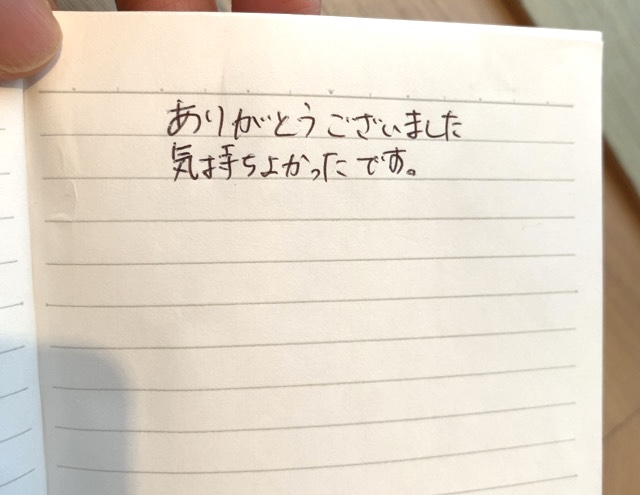 ありがとうございました
気持ちよかったです。